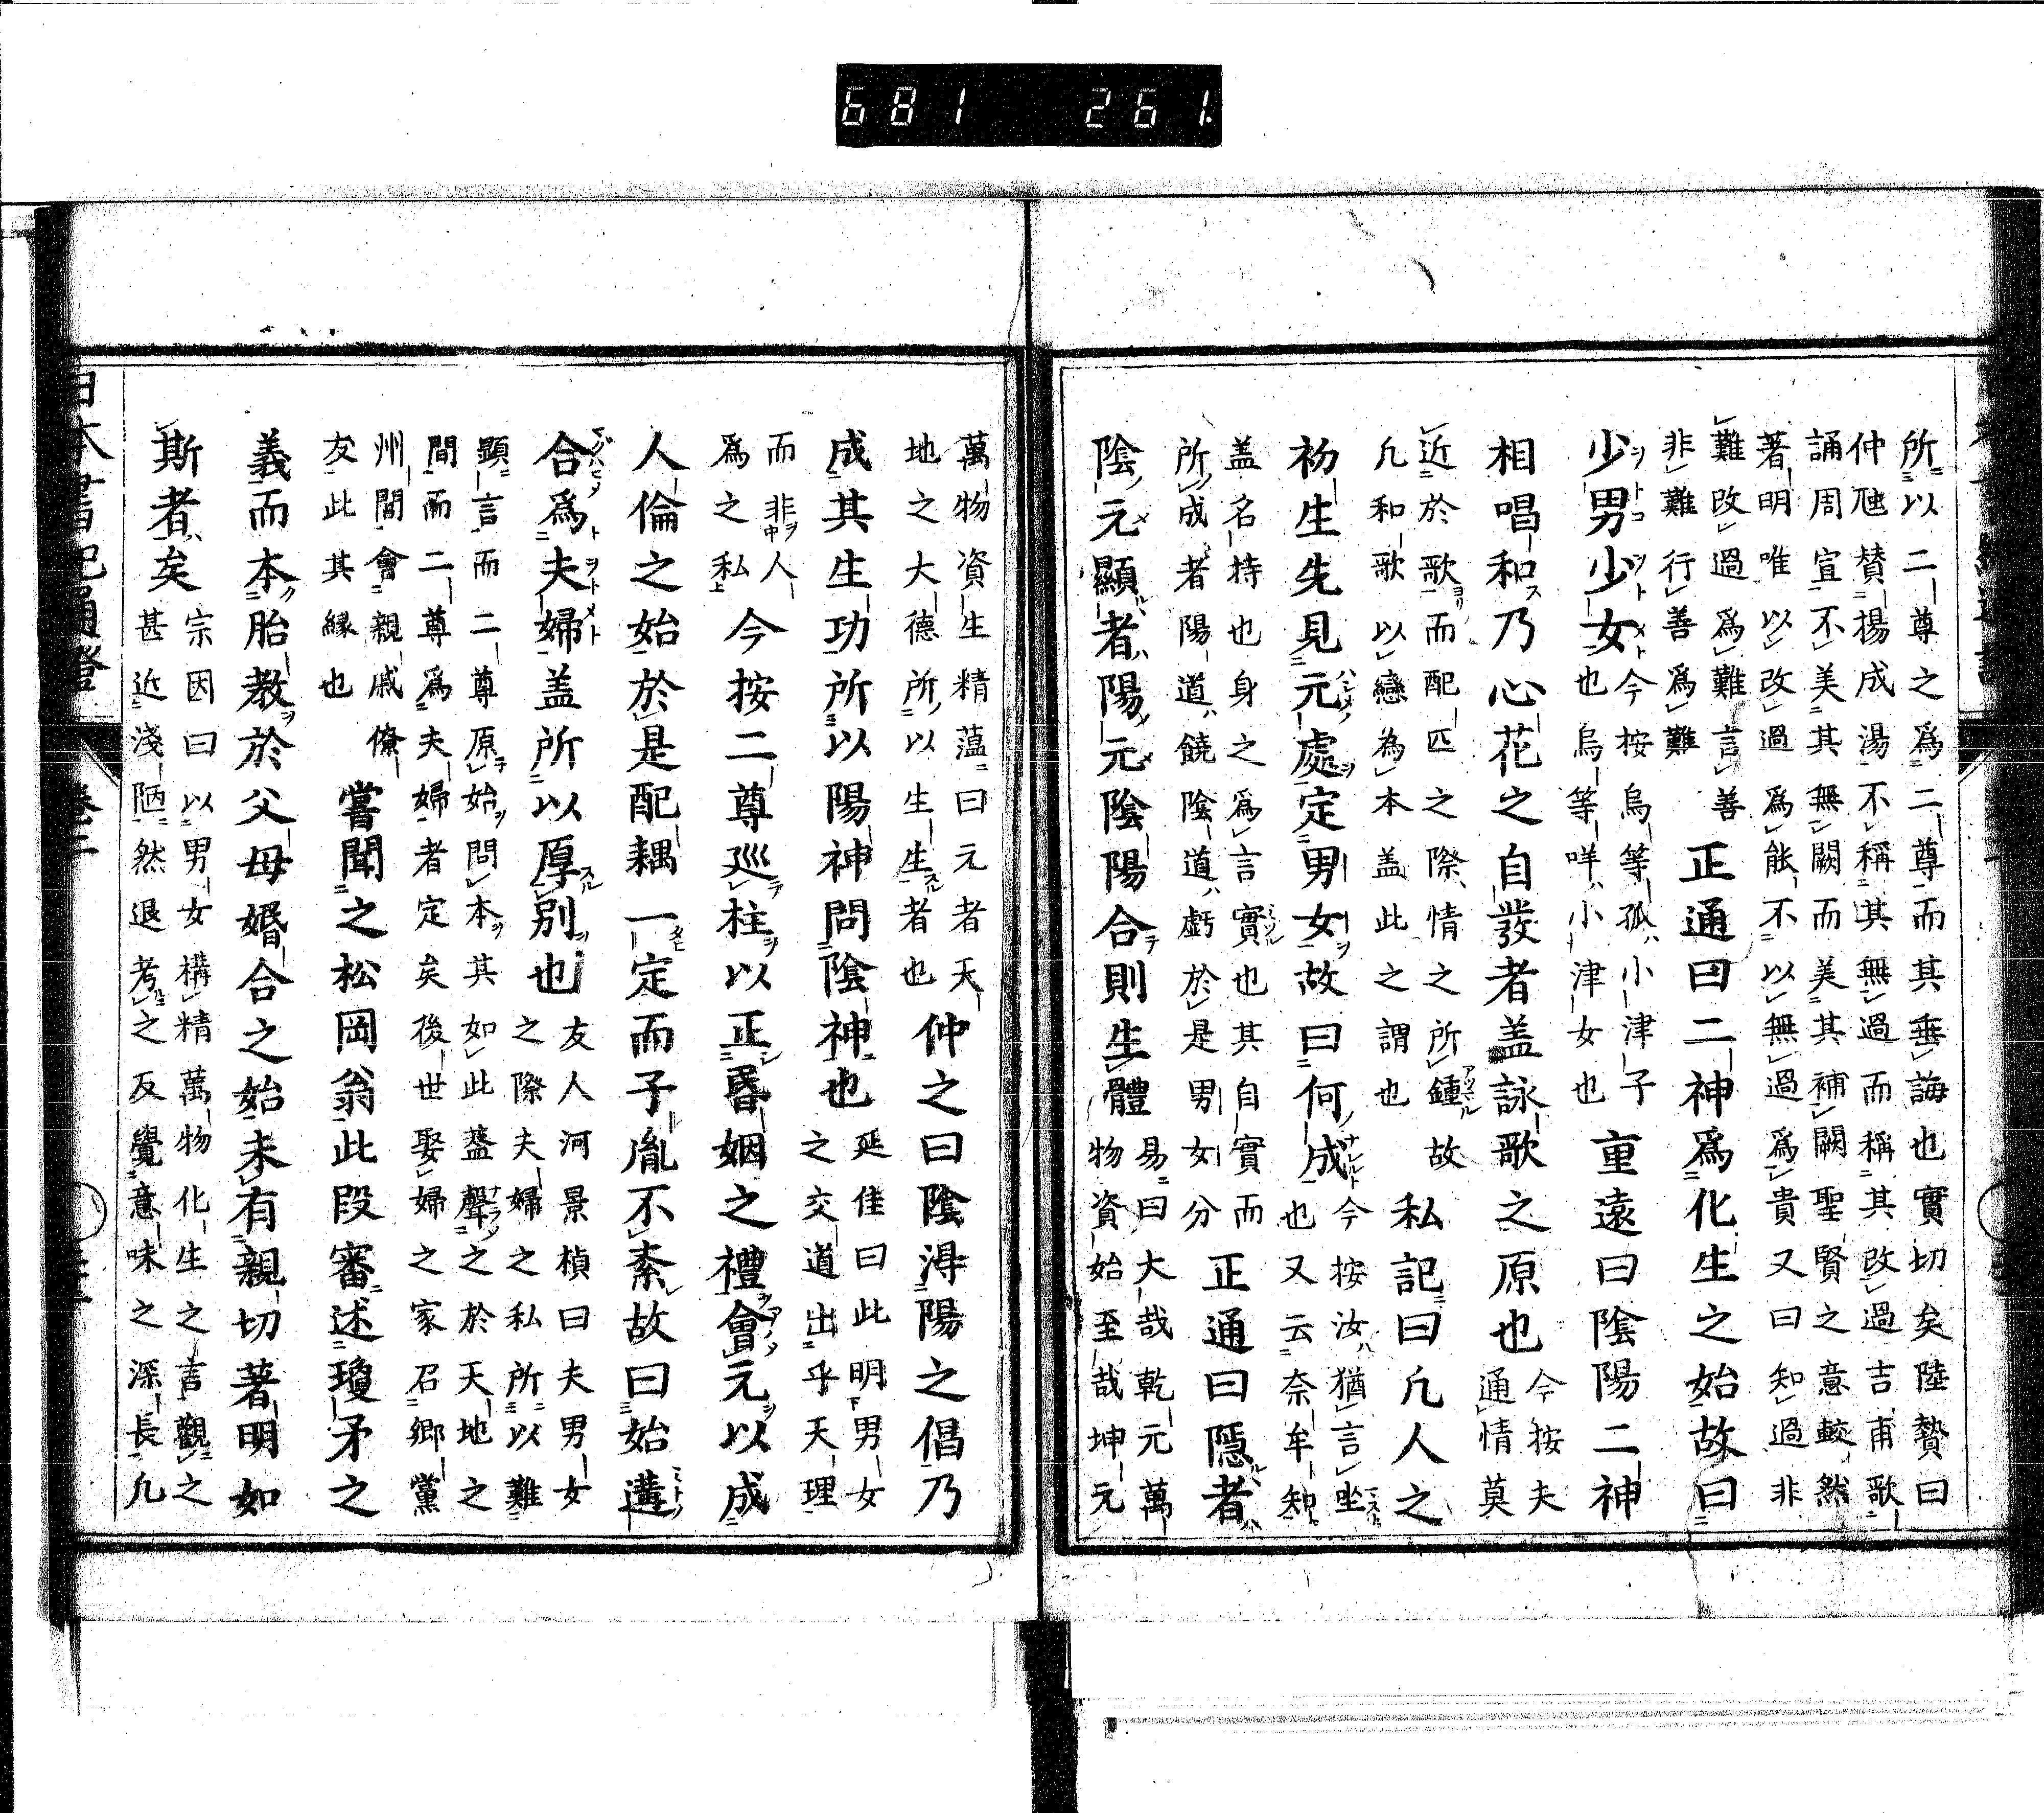 681 261
所以二尊之爲二尊而其垂誨也實切矣陸贄曰
仲虺賛揚成湯不稱其無過而稱其改過吉甫歌
誦周宣不美其無闕而美其補闕聖賢之意較然
著明唯以改過爲能不以無過爲貴又曰知過非
難改過爲難言善
非難行善爲難
正通曰二神爲化生之始故曰
少男少女
今按烏等孤小津子
也烏等咩小津女也
重遠曰陰陽二神
相唱和乃心花之自發者盖詠歌之原也
今按夫
通情莫
近於歌而配匹之際情之所鍾故
凢和歌以戀為本盖此之謂也
私記曰凢人之
初生先見元處定男女故曰何成
今按汝猶言坐
也又云奈牟知
盖名持也身之爲言實也其自實而
所成者陽道饒陰道虧於是男女分
正通曰隱者
陰元顯者陽元陰陽合則生體
易曰大哉乾元萬
物資始至哉坤元
萬物資生精薀曰元者天
地之大德所以生生者也
仲之曰陰淂陽之倡乃
成其生功所以陽神問陰神也
延佳曰此明男女
之交道出乎天理
而非人
爲之私
今按二尊巡柱以正昏姻之禮會元以成
人倫之始於是配耦一定而子胤不紊故曰始遘
合爲夫婦盖所以厚別也
友人河景楨曰夫男女
之際夫婦之私所以難
顯言而二尊原始問本其如此葢聲之於天地之
間而二尊爲夫婦者定矣後世娶婦之家召鄉黨
州閭會親戚僚
友此其縁也
嘗聞之松岡翁此段審述瓊矛之
義而本胎教於父母婚合之始未有親切著明如
斯者矣
宗因曰以男女構精萬物化生之言觀之
甚近淺陋然退考之反覺意味之深長凢
日本書紀通證